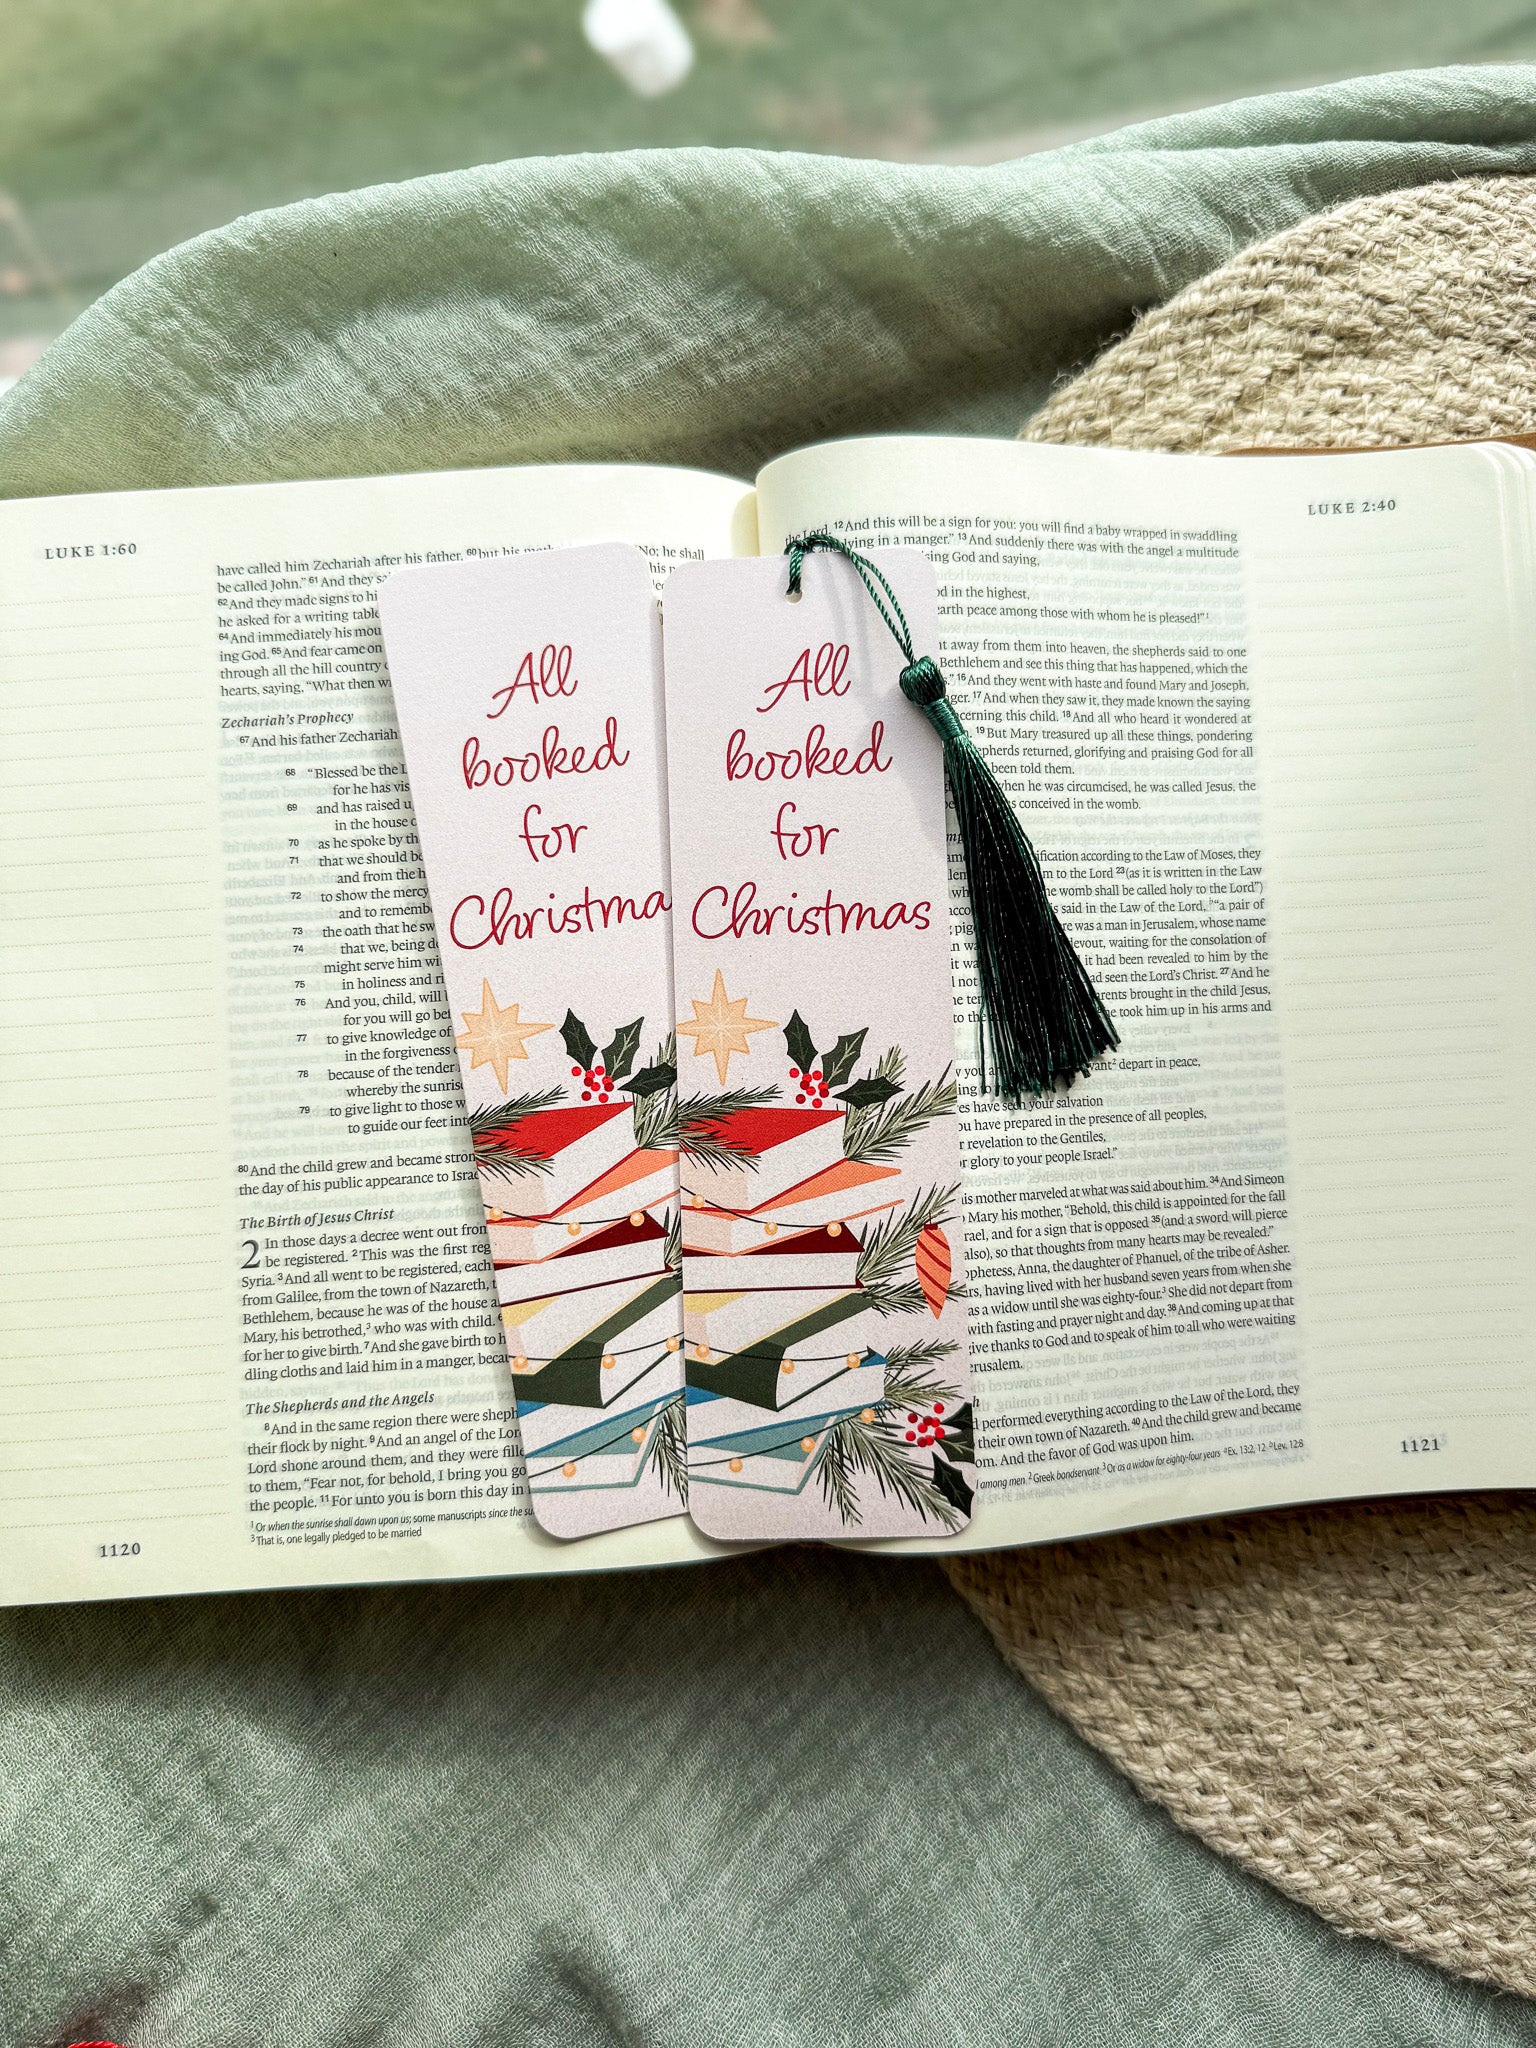 LUKE 1:60
have called him Zechariah after his father. 60 but his "No; he shall
be called John." 61 And they
62 And they made signs to
he asked for a writing
64 And immediately his
ing God. 65 And fear came on
through all the hill country
hearts, saying, "What then
Zechariah's Prophecy
67 And his father Zechariah
68 "Blessed be the
for he has
69 and has raised
in the house
70 as he spoke by
71 that we should
and from the
72 to show the
and to
73 the oath that he
74 that we, being
might serve him
75 in holiness and
76 And you, child, will
for you will go
77 to give knowledge of
in the forgiveness
78 because of the tender
whereby the
79 to give light to those
to guide our feet
80 And the child grew and became
the day of his public appearance to
The Birth of Jesus Christ
2 In those days a decree went out from
be registered. 2 This was the first
Syria. 3 And all went to be registered, each
from Galilee, from the town of Nazareth,
Bethlehem, because he was of the house
Mary, his betrothed,3 who was with child.
for her to give birth. 7 And she gave birth to
dling cloths and laid him in a manger,
The Shepherds and the Angels
8 And in the same region there were
their flock by night. 9 And an angel of the
Lord shone around them, and they were
to them, "Fear not, for behold, I bring you
the people. 11 For unto you is born this day in
1 Or when the sunrise shall dawn upon us; some manuscripts since the
3 That is, one legally pledged to be married
1120
All
booked
for
Christma
All
booked
for
Christmas
LUKE 2:40
the Lord. 12 And this will be a sign for you: you will find a baby wrapped in swaddling
lying in a manger." 13 And suddenly there was with the angel a multitude
God and saying,
in the highest,
peace among those with whom he is pleased!"1
away from them into heaven, the shepherds said to one
Bethlehem and see this thing that has happened, which the
16 And they went with haste and found Mary and Joseph,
17 And when they saw it, they made known the saying
this child. 18 And all who heard it wondered at
19 But Mary treasured up all these things, pondering
returned, glorifying and praising God for all
been told them.
when he was circumcised, he was called Jesus, the
conceived in the womb.
according to the Law of Moses, they
to the Lord 23 (as it is written in the Law
the womb shall be called holy to the Lord")
is said in the Law of the Lord, "a pair of
was a man in Jerusalem, whose name
devout, waiting for the consolation of
it had been revealed to him by the
seen the Lord's Christ. 27 And he
brought in the child Jesus,
he took him up in his arms and
depart in peace,
have seen your salvation
have prepared in the presence of all peoples,
revelation to the Gentiles,
glory to your people Israel."
his mother marveled at what was said about him. 34 And Simeon
Mary his mother, "Behold, this child is appointed for the fall
and for a sign that is opposed 35 (and a sword will pierce
also), so that thoughts from many hearts may be revealed."
Anna, the daughter of Phanuel, of the tribe of Asher.
having lived with her husband seven years from when she
as a widow until she was eighty-four.3 She did not depart from
with fasting and prayer night and day. 38 And coming up at that
give thanks to God and to speak of him to all who were waiting
performed everything according to the Law of the Lord, they
their own town of Nazareth. 40 And the child grew and became
And the favor of God was upon him.
among men. 2 Greek bondservant 3 Or as a widow for eighty-four years
1121